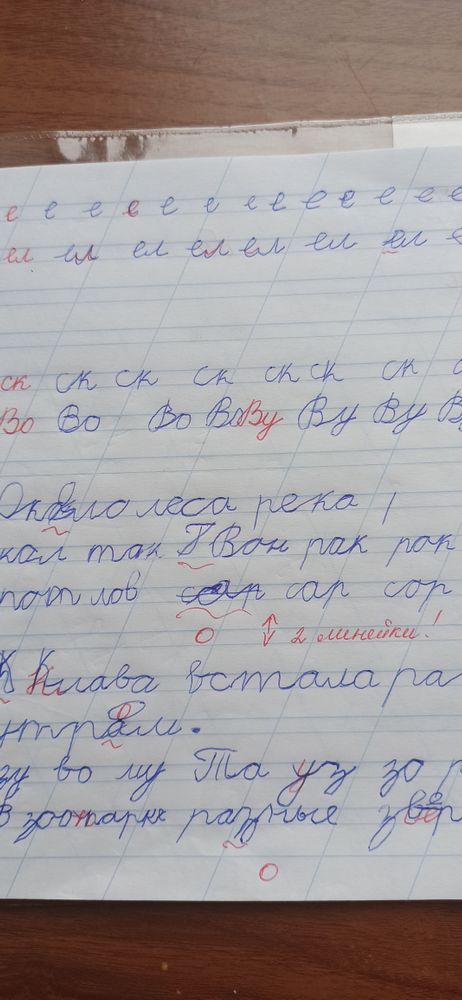 е е е е е е е е е е е е е
ел ел ел ел ел ел ел
ск ск ск ск ск ск ск
Во Во Во Во Ву Ву Ву
Около леса река
кал так Вон рак рок
потлов сар сор
о 2 линейки!
Клава встала ра
утром.
зу во лу Та уз зо
В зоопарке разные
о